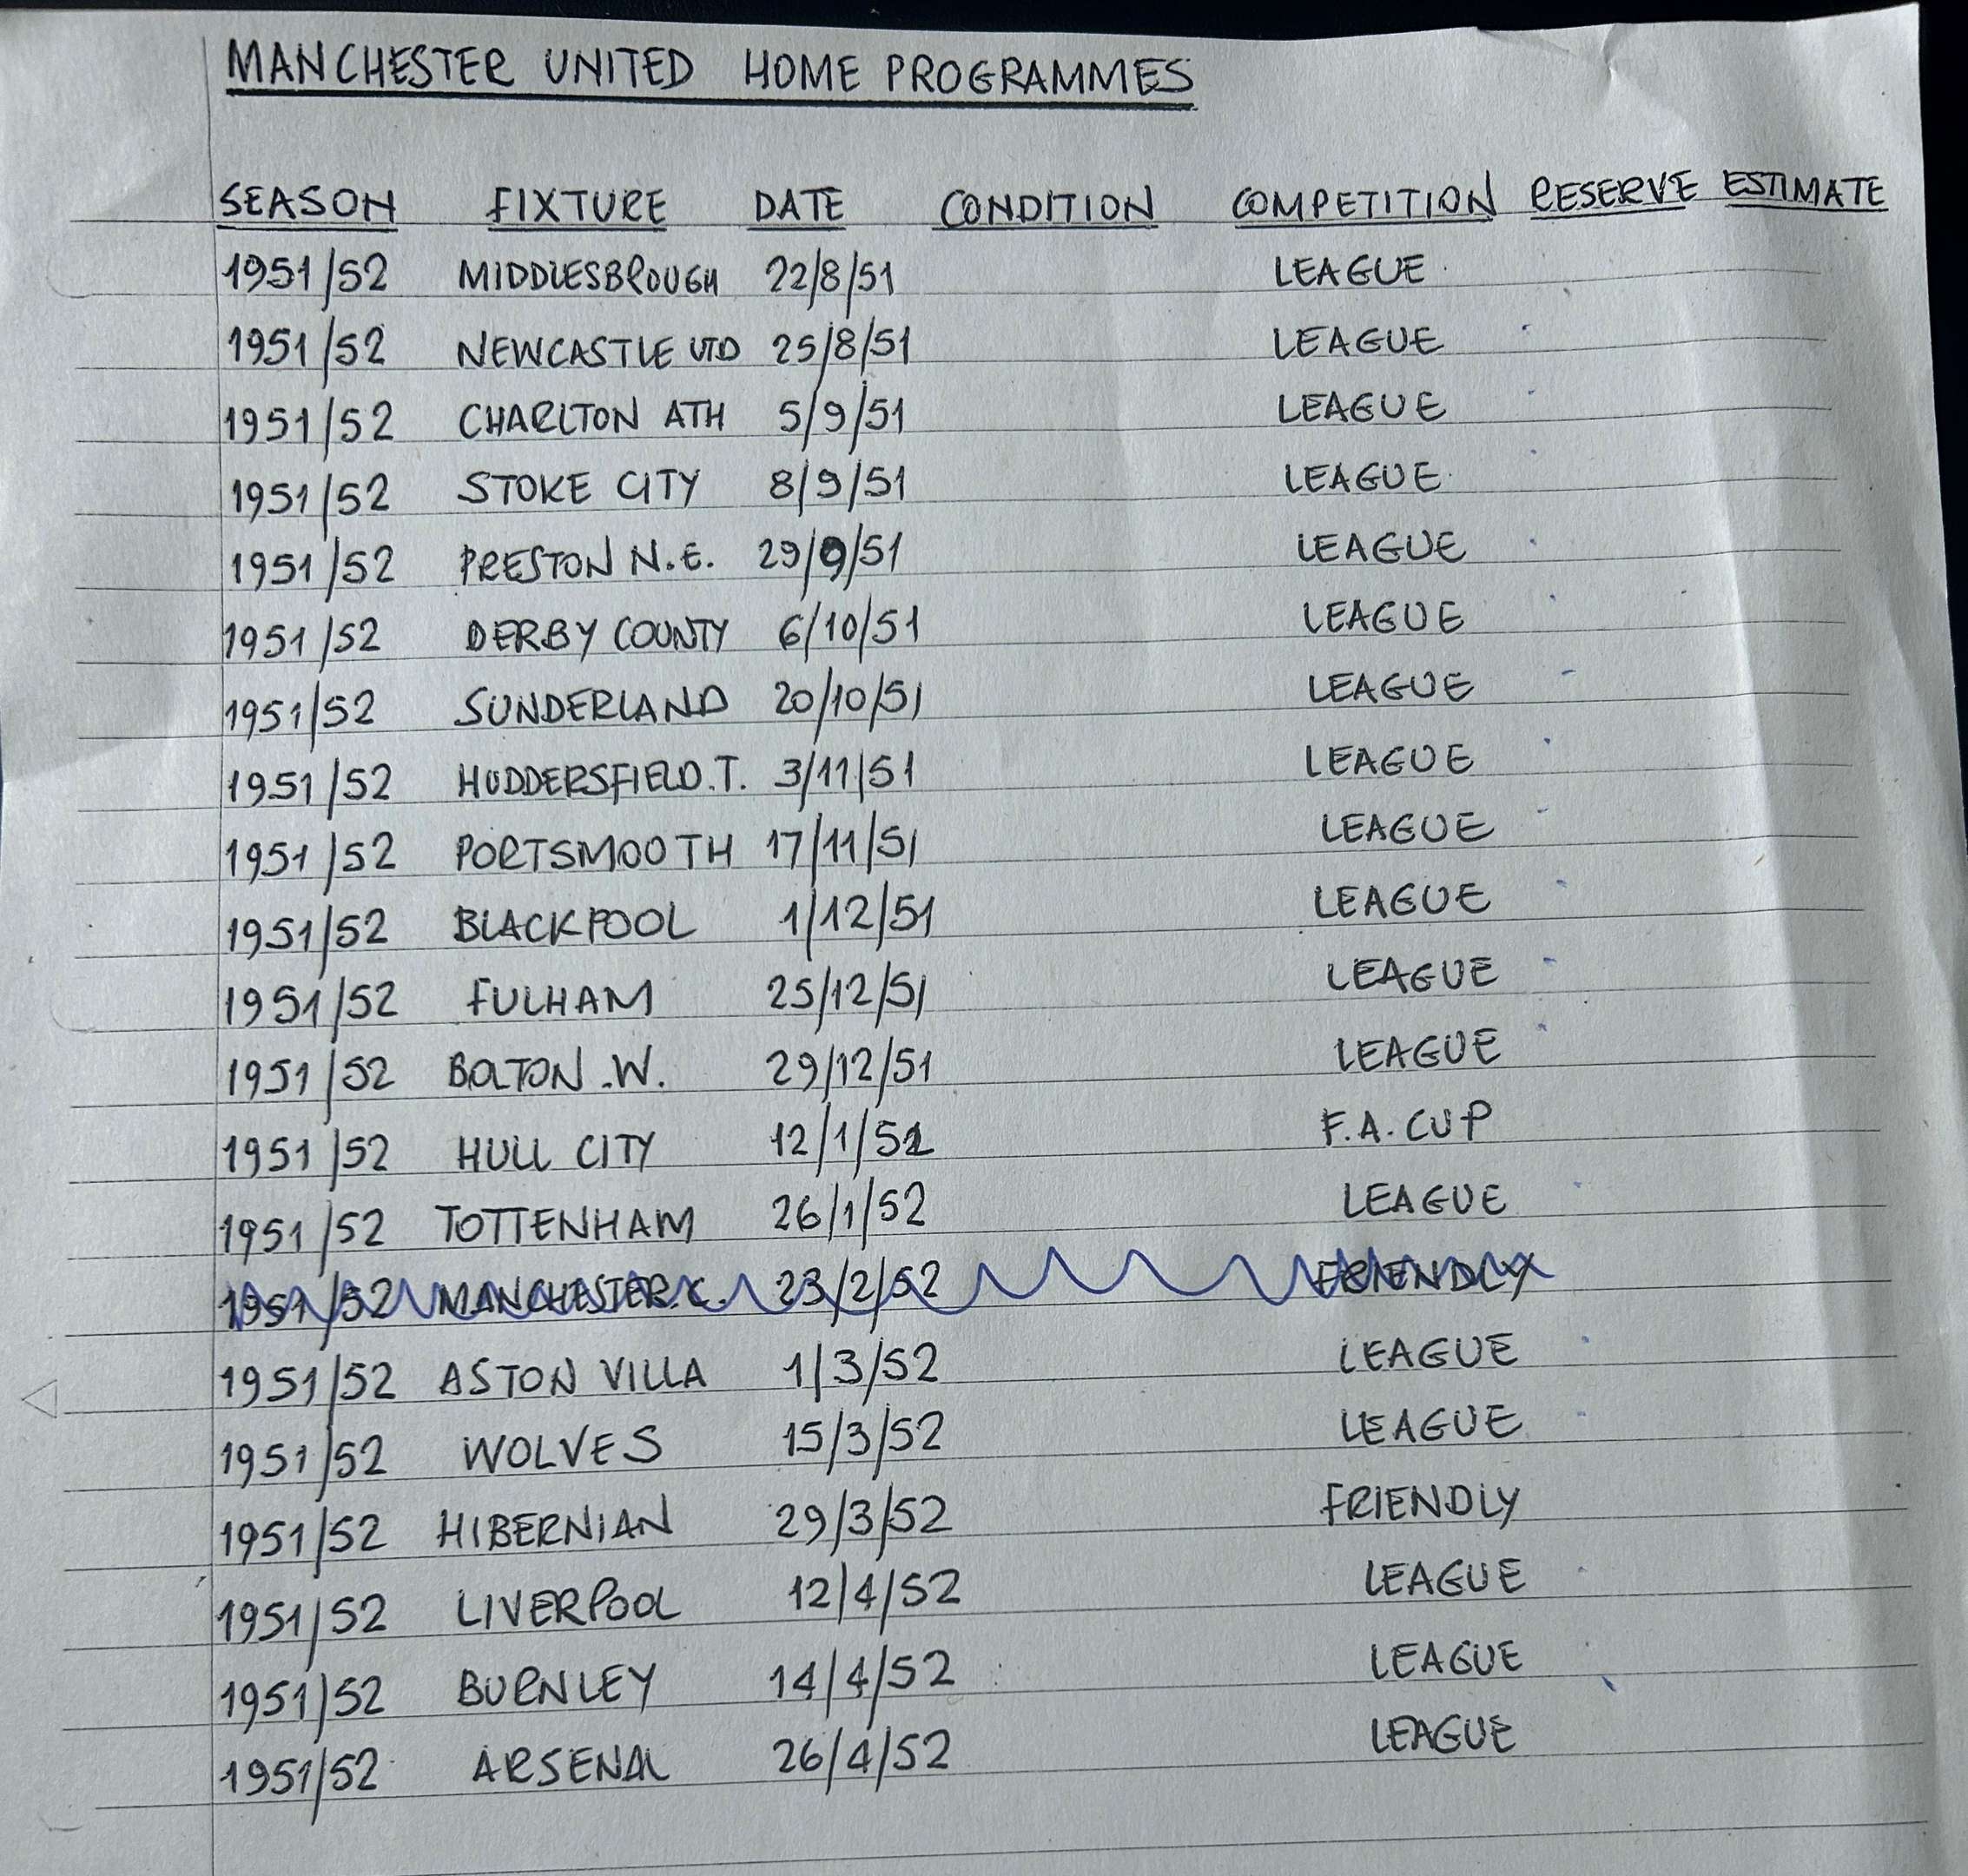 MANCHESTER UNITED HOME PROGRAMMES
SEASON FIXTURE DATE CONDITION COMPETITION RESERVE ESTIMATE
1951/52 MIDDLESBROUGH 22/8/51 LEAGUE
1951/52 NEWCASTLE UTD 25/8/51 LEAGUE
1951/52 CHARLTON ATH 5/9/51 LEAGUE
1951/52 STOKE CITY 8/9/51 LEAGUE
1951/52 PRESTON N.E. 29/9/51 LEAGUE
1951/52 DERBY COUNTY 6/10/51 LEAGUE
1951/52 SUNDERLAND 20/10/51 LEAGUE
1951/52 HUDDERSFIELD.T. 3/11/51 LEAGUE
1951/52 PORTSMOUTH 17/11/51 LEAGUE
1951/52 BLACKPOOL 1/12/51 LEAGUE
1951/52 FULHAM 25/12/51 LEAGUE
1951/52 BOLTON .W. 29/12/51 LEAGUE
1951/52 HULL CITY 12/1/52 F.A. CUP
1951/52 TOTTENHAM 26/1/52 LEAGUE
1951/52 MANCHESTER.C. 23/2/52 FRIENDLY
1951/52 ASTON VILLA 1/3/52 LEAGUE
1951/52 WOLVES 15/3/52 LEAGUE
1951/52 HIBERNIAN 29/3/52 FRIENDLY
1951/52 LIVERPOOL 12/4/52 LEAGUE
1951/52 BURNLEY 14/4/52 LEAGUE
1951/52 ARSENAL 26/4/52 LEAGUE